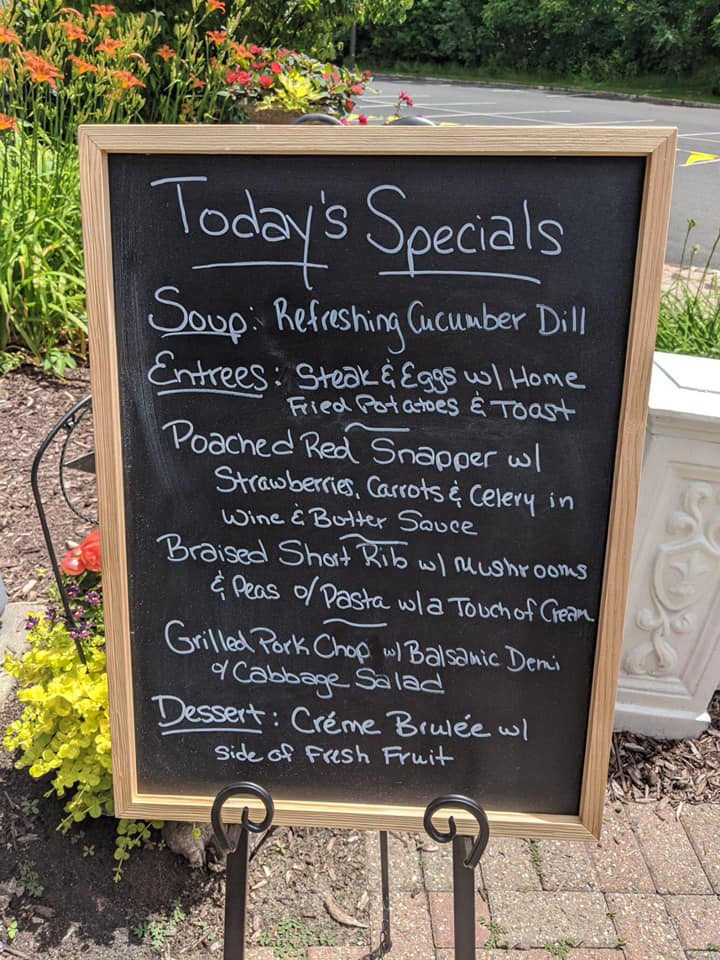 Today's Specials
Soup: Refreshing Cucumber Dill
Entrees: Steak & Eggs w/ Home
Fried Potatoes & Toast
Poached Red Snapper w/
Strawberries, Carrots & Celery in
Wine & Butter Sauce
Braised Short Rib w/ Mushrooms
& Peas o/ Pasta w/ a Touch of Cream
Grilled Pork Chop w/ Balsamic Demi
o/ Cabbage Salad
Dessert: Créme Brulée w/
side of Fresh Fruit